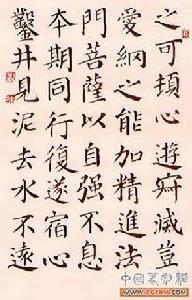 之可頃心遊寂滅豈
愛網之能加精進法
門菩薩以自强不息
本期同行復遂宿心
鑿井見泥去水不遠